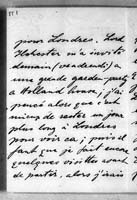 pour Londres. Lord
Ilchester m'a invité
demain (vendredi) à
une grande garden-party
à Holland House; j'ai
pensé alors que c'est
mieux de rester un jour
plus long à Londres
pour voir ca; puis il
faut que je fait encore
quelques visites avant
de partir, alors j'irais